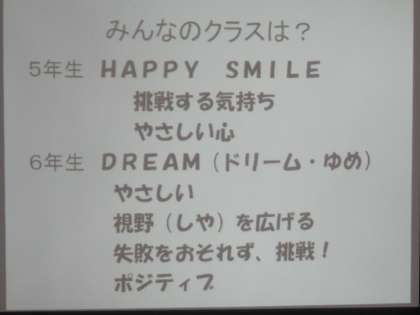 みんなのクラスは？
5年生 HAPPY SMILE
挑戦する気持ち
やさしい心
6年生 DREAM（ドリーム・ゆめ）
やさしい
視野（しや）を広げる
失敗をおそれず、挑戦！
ポジティブ